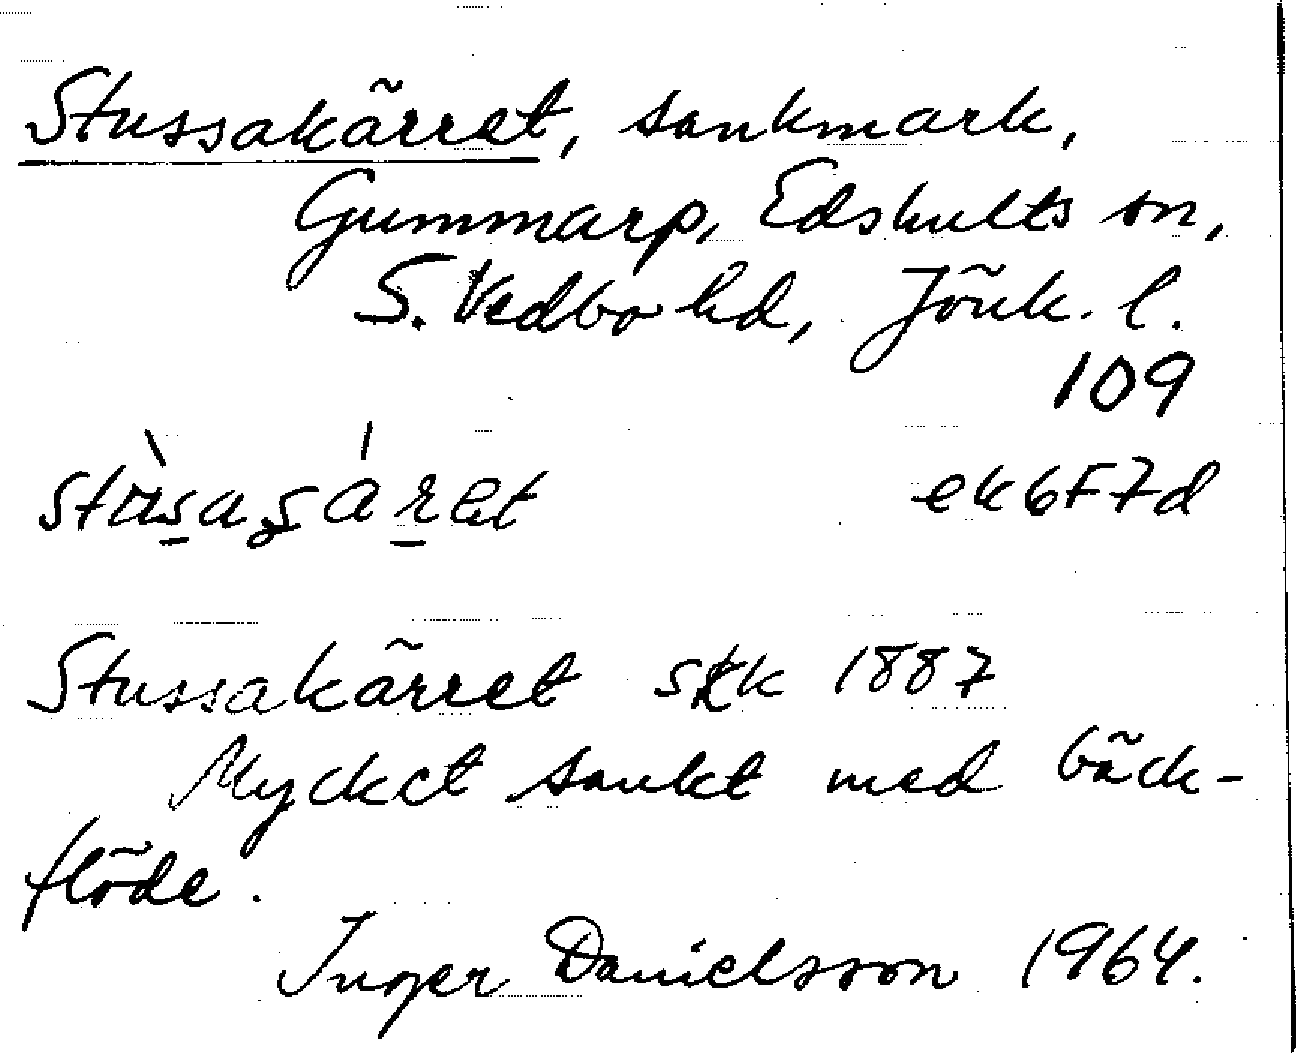 Stussakärret, sankmark,
Gummarp, Edshults sn,
S. Vedbo hd, Jönk. l.
109
ek6F7d
Stussakärret skk 1887
Mycket sankt med bäck-
flöde.
Inger Danielsson 1964.